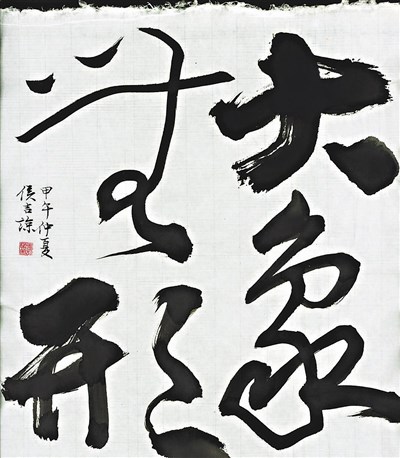 大象
無形
甲午仲夏
侯吉諒